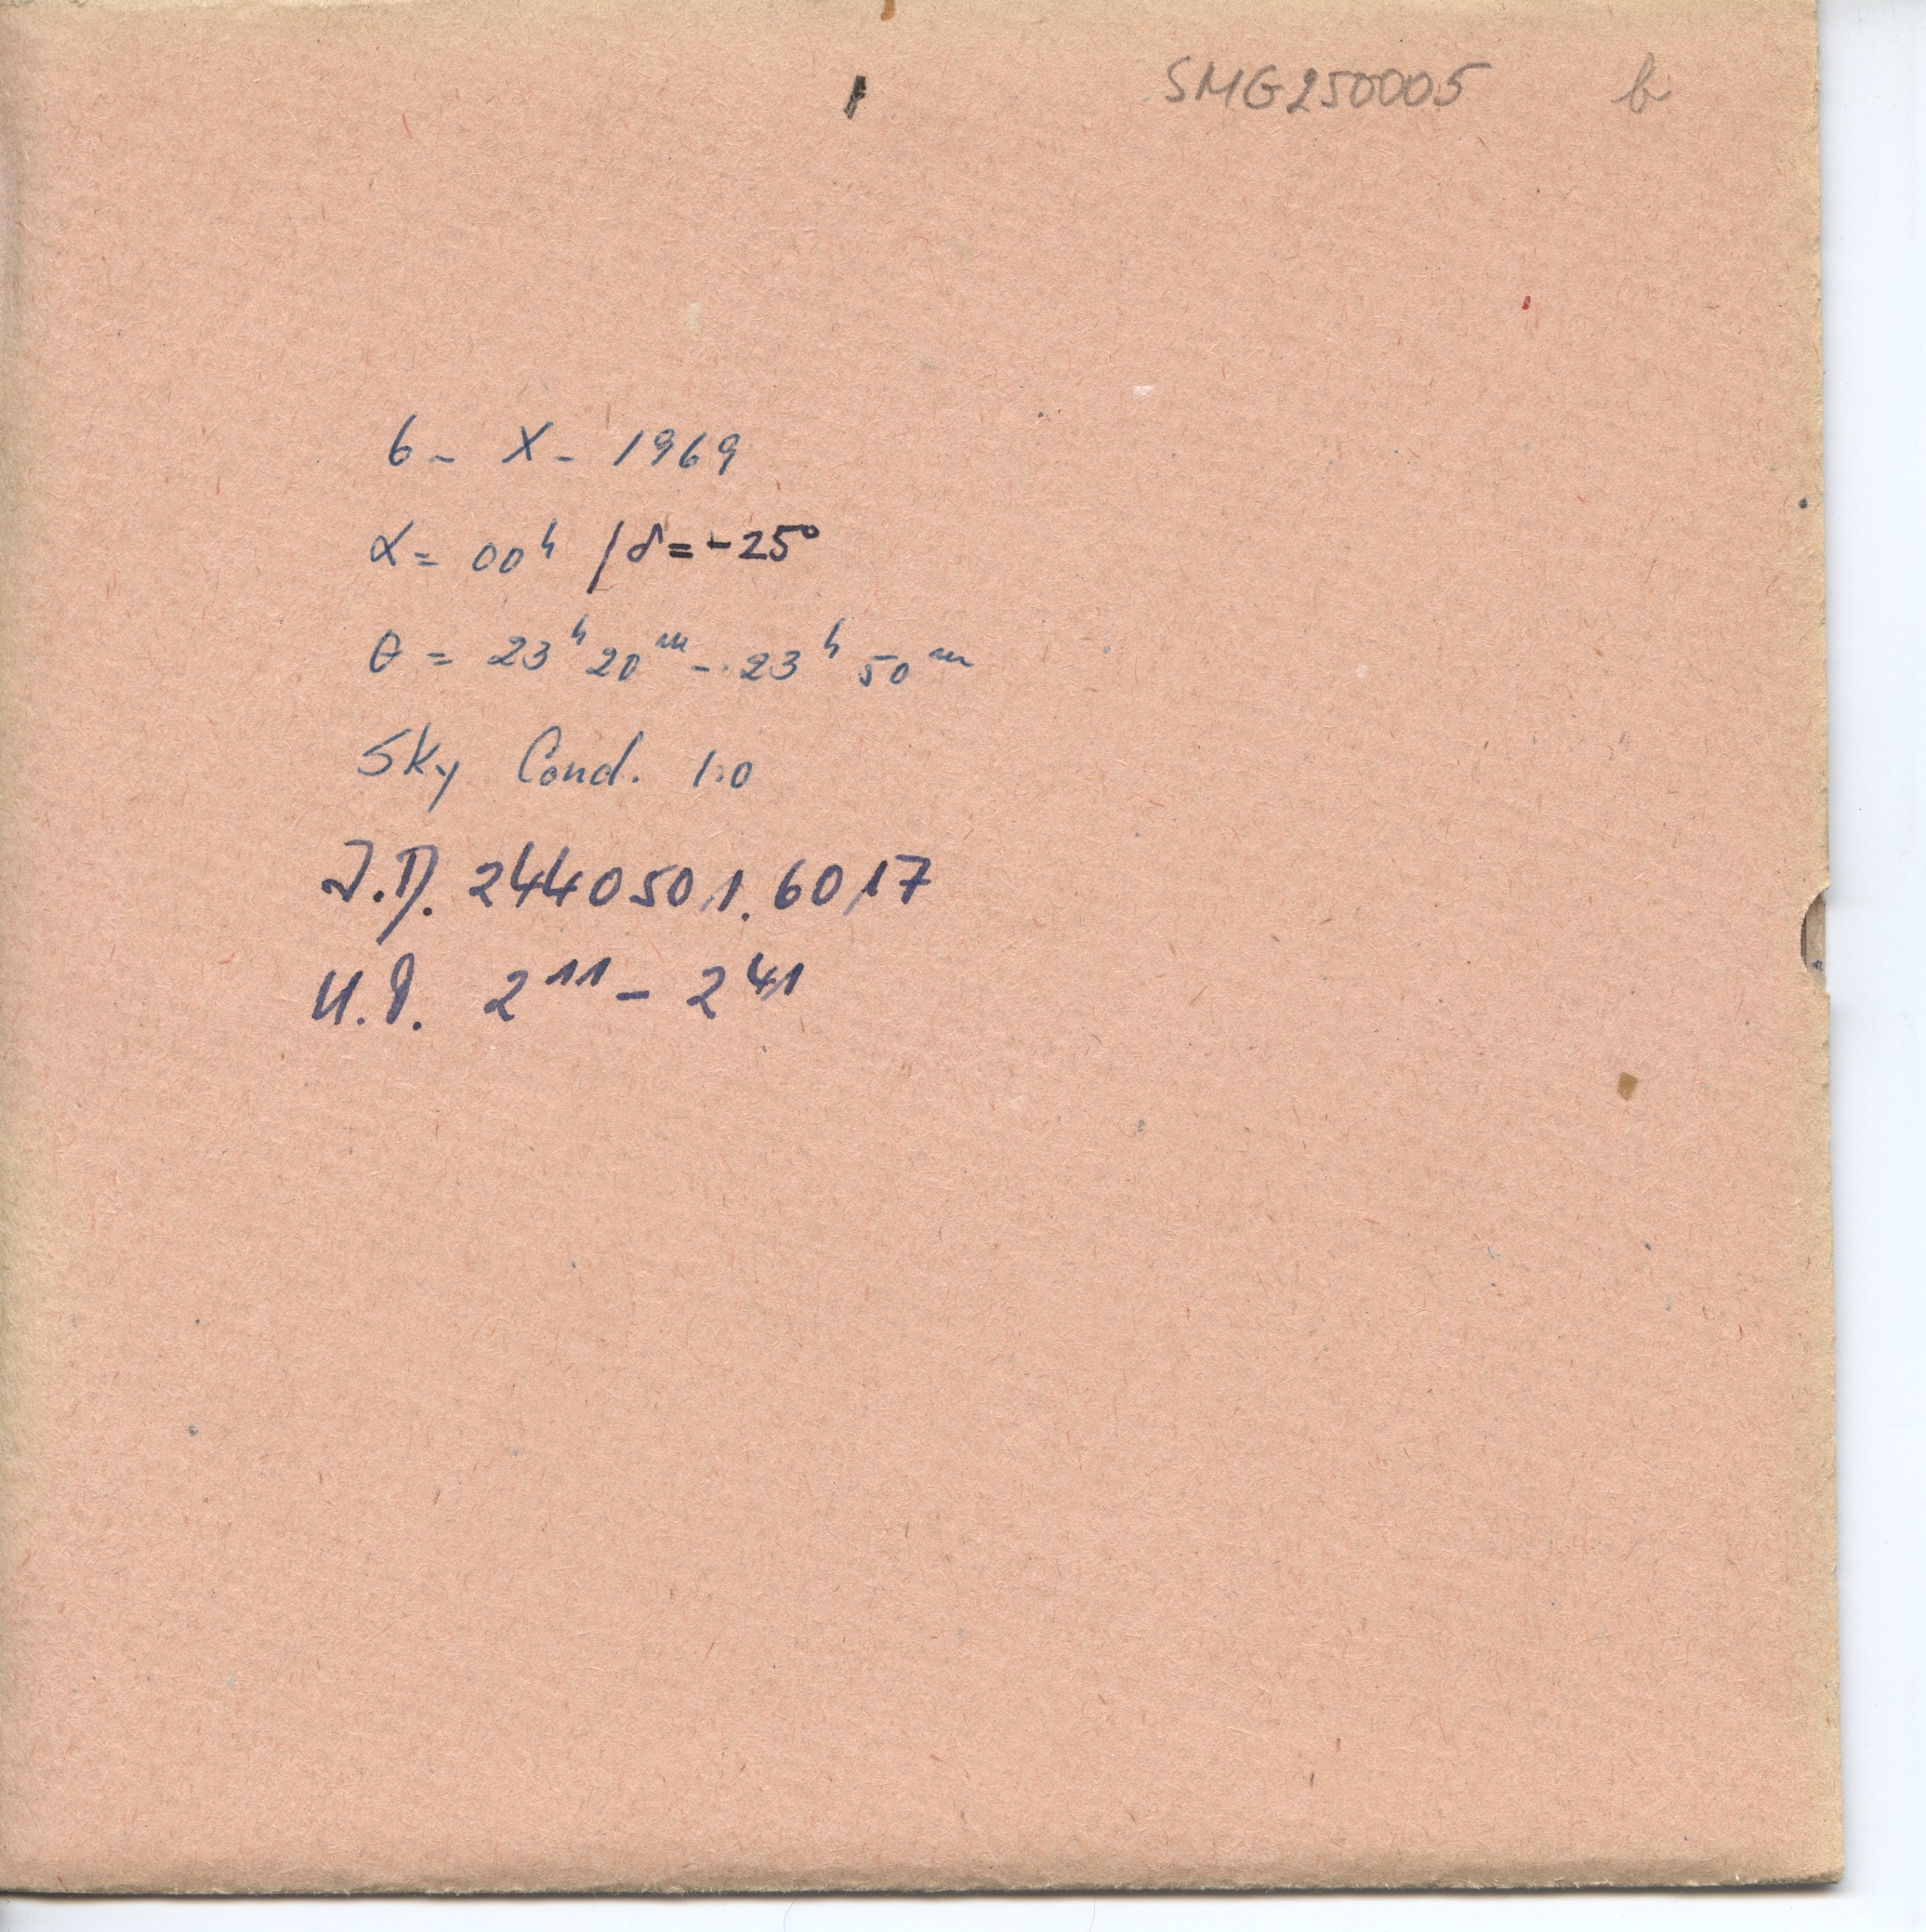 SMG250005 b
6 - X - 1969
α = 00ʰ / δ = -25°
θ = 23ʰ 20ᵐ - 23ʰ 50ᵐ
Sky Cond. 1.0
J.D. 2440501.6017
U.T. 2¹¹ - 2⁴¹